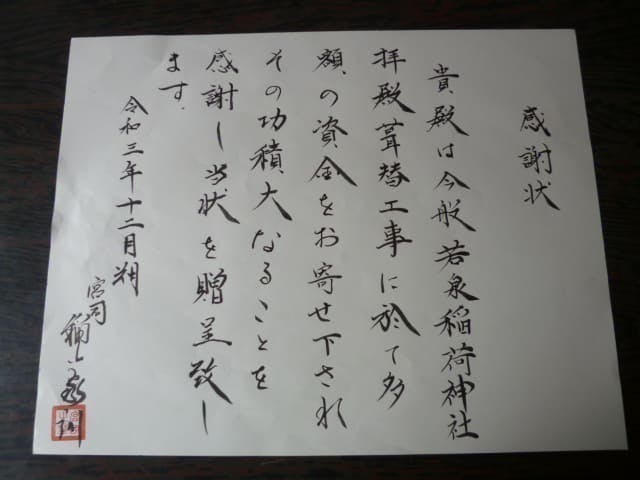 感謝状
貴殿は今般若泉稲荷神社
拝殿葺替工事に於て多
額の資金をお寄せ下され
その功積大なることを
感謝し当状を贈呈致し
ます.
令和三年十二月朔
宮司